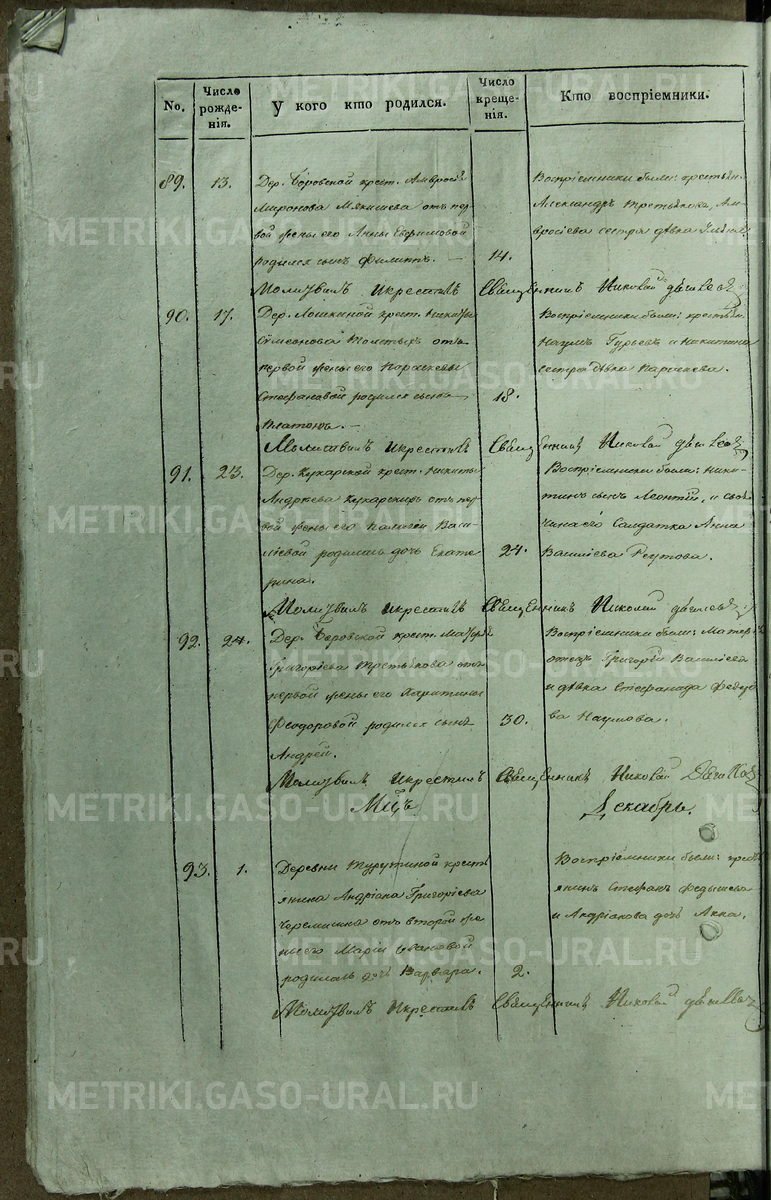 No.
Число рожденія.
У кого кто родился.
Число крещенія.
Кто воспріемники.
89. 13.
Дер. Боровской крест. Амвросiя
Миронова Мякишева отъ пер-
вой жены его Анны Евфимовой
родился сынъ Филиппъ. —
14.
Воспріемники были: крестьян.
Александръ Третьякова, Ам-
вросіева сестра дѣвка
Молитвилъ и крестилъ Священникъ Николай
90. 17.
Дер. Лошкиной крест. Никиты
Симеонова отъ
первой жены его Параскевы
Стефановой родился сынъ
Платонъ. —
18.
Воспріемники были: крестьян.
Наумъ Гурьевъ и Никитина
сестра дѣвка Параскева.
Молитвилъ и крестилъ Священникъ Николай
91. 23.
Дер. Кухарской крест. Никиты
Андреева Кухарскихъ отъ пер-
вой жены его Палагеи Васи-
лiевой родилась дочь Екате-
рина.
24.
Воспріемники были: Ники-
тинъ сынъ Леонтій, и своя-
чина его Солдатка Анна
Василіева Реутова.
Молитвилъ и крестилъ Священникъ Николай
92. 24.
Дер. Боровской крест.
Григоріева Третьякова отъ
первой жены его Харитины
Феодоровой родился сынъ
Андрей.
30.
Воспріемники были:
отецъ Григорій Василіевъ
и дѣвка Стефанида
Наумова.
Молитвилъ и крестилъ Священникъ Николай
Мѣсяцъ Декабрь.
93. 1.
Деревни Турутиной кресть-
янина Андріана Григоріева
Черемшина отъ второй же-
ны его Маріи Ивановой
родилась дочь Варвара.
2.
Воспріемники были: кресть-
янинъ Стефанъ
и Андріанова дочь Анна.
Молитвилъ и крестилъ Священникъ Николай
METRIKI.GASO-URAL.RU